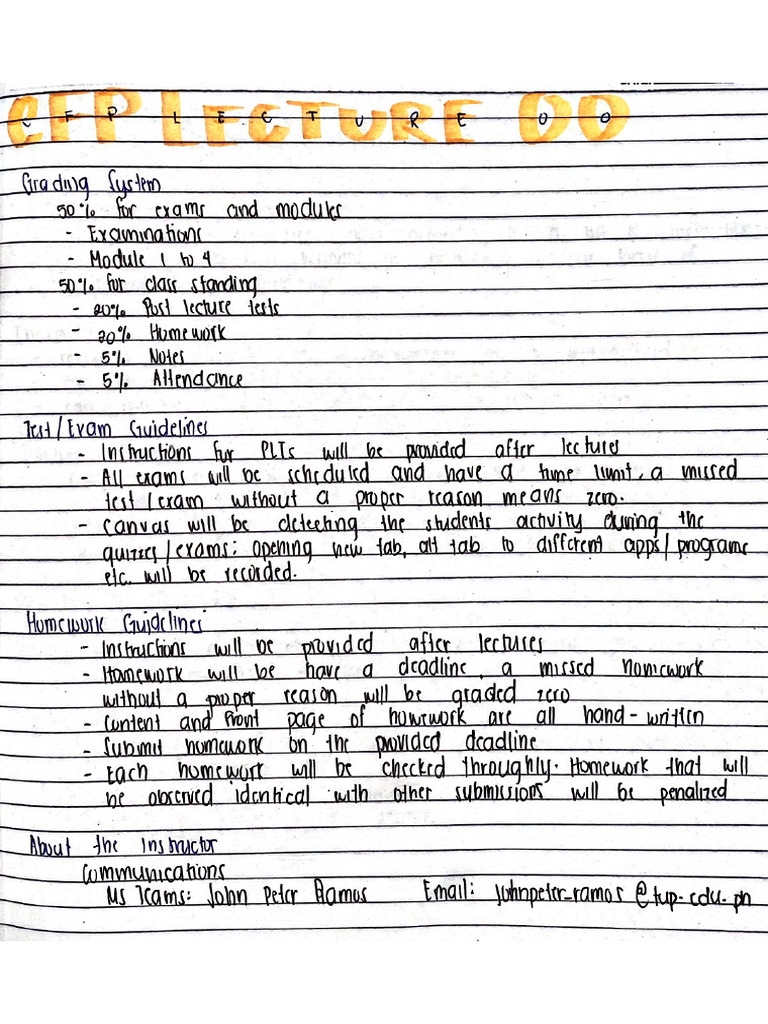 CFP LECTURE 00
Grading System
50% for exams and modules
- Examinations
- Module 1 to 4
50% for class standing
- 20% Post lecture tests
- 20% Homework
- 5% Notes
- 5% Attendance
Test/Exam Guidelines
- Instructions for PLTs will be provided after lectures
- All exams will be scheduled and have a time limit, a missed
test/exam without a proper reason means zero.
- Canvas will be detecting the students activity during the
quizzes/exams: opening new tab, alt tab to different apps/programs
etc. will be recorded.
Homework Guidelines
- Instructions will be provided after lectures
- Homework will be have a deadline, a missed homework
without a proper reason will be graded zero
- Content and front page of homework are all hand-written
- Submit homework on the provided deadline
- Each homework will be checked throughly. Homework that will
be observed identical with other submissions will be penalized
About the Instructor
Communications
Ms Teams: John Peter Ramos Email: johnpeter_ramos@tup.edu.ph